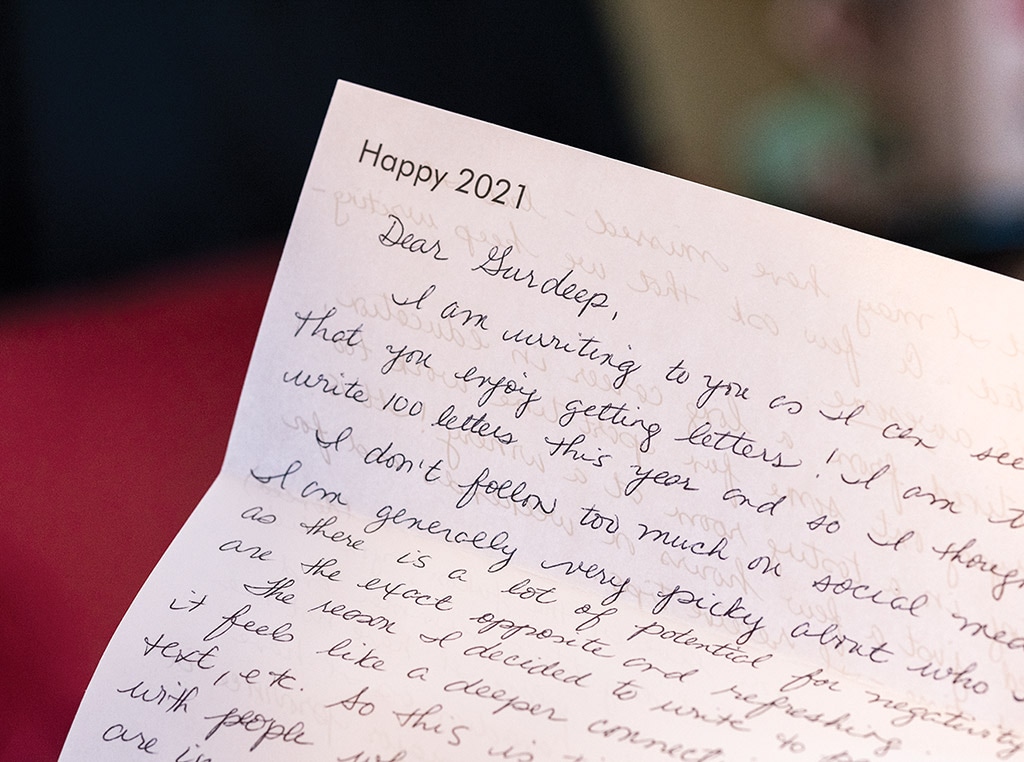 Happy 2021
Dear Gurdeep,
I am writing to you as I can see
that you enjoy getting letters! I am t
write 100 letters this year and so I though
I don't follow too much on social med
I am generally very picky about who
as there is a lot of potential for negativity
are the exact opposite and refreshing.
The reason I decided to write to
it feels like a deeper connect
text, etc. So this is
with people
are